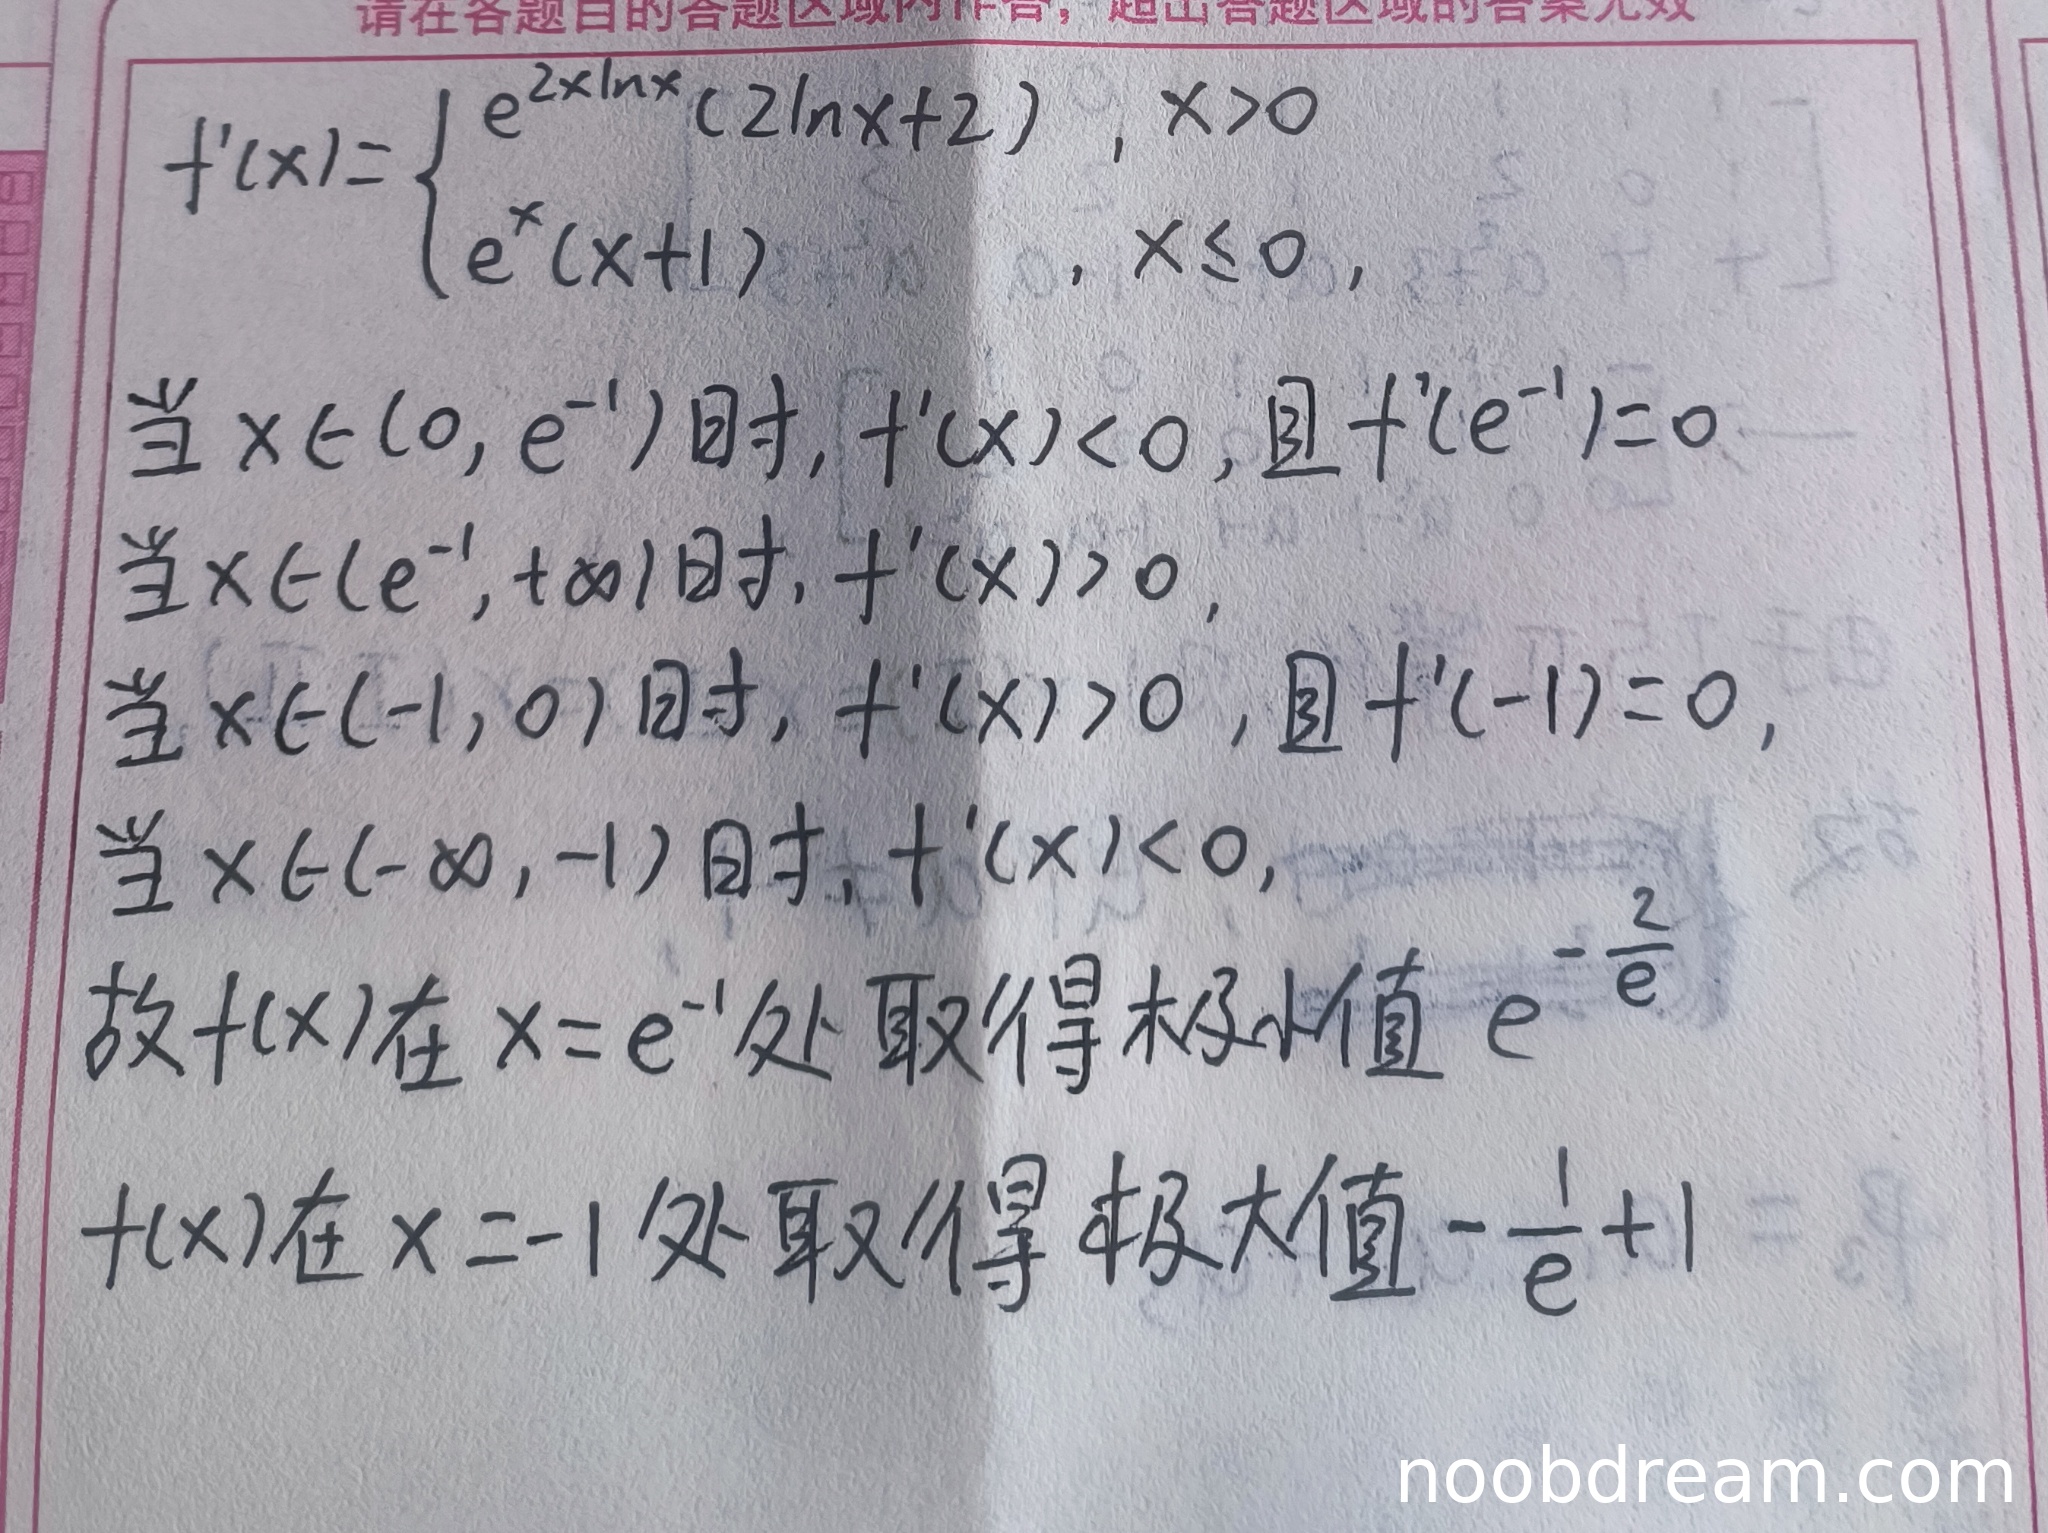 请在各题目的答题区域内作答，超出答题区域的答案无效
f'(x)={ e^{2xlnx}(2lnx+2) , x>0
e^x(x+1) , x≤0,
当x∈(0, e^{-1})时, f'(x)<0, 且f'(e^{-1})=0
当x∈(e^{-1}, +∞)时, f'(x)>0,
当x∈(-1, 0)时, f'(x)>0, 且f'(-1)=0,
当x∈(-∞, -1)时, f'(x)<0,
故f(x)在x=e^{-1}处取得极小值 e^{-\frac{2}{e}}
f(x)在x=-1处取得极大值 -\frac{1}{e}+1
noobdream.com